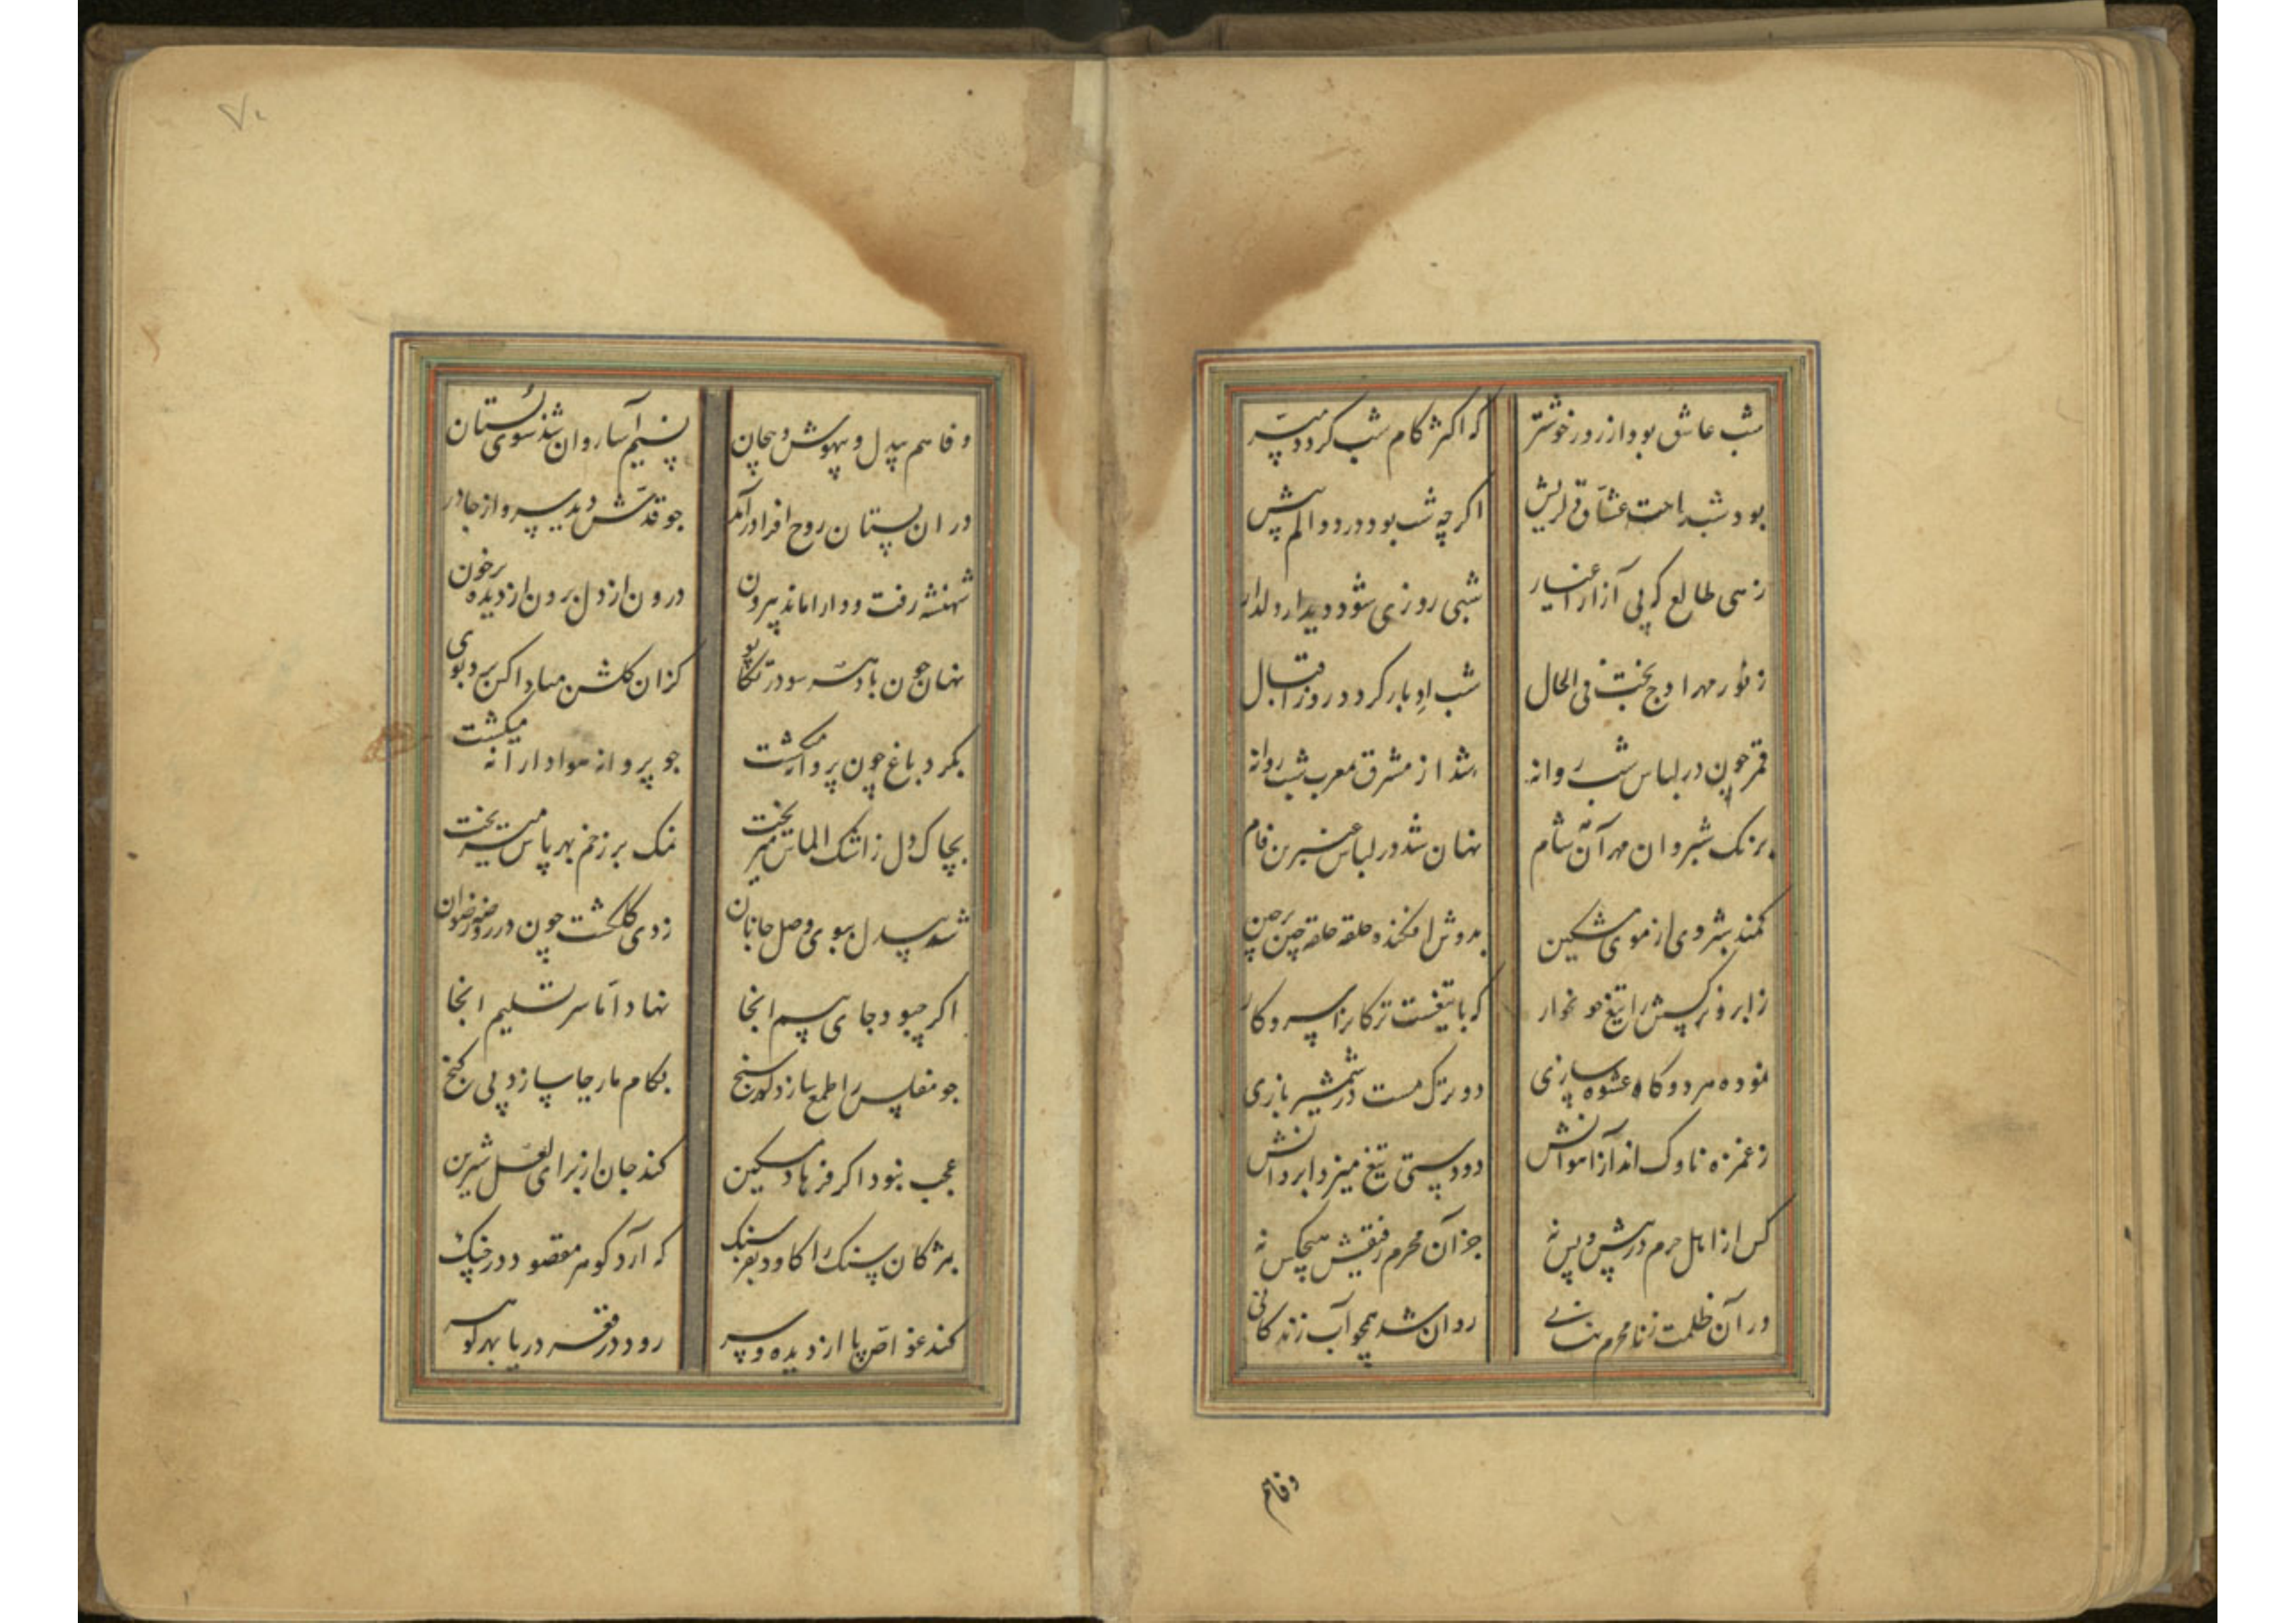 شب عاشق بود از روز خوشتر که اکثر کام شب گردد میسر
بود شب راحت عشاق دلریش اگرچه شب بود درد و الم پیش
زهی طالع که بی آزار اغیار شبی روزی شود دیدار دلدار
ز نور مهر اوج بخت فی الحال شب ادبار گردد روز اقبال
قمر چون در لباس شب روانه شد از مشرق بمغرب شب روانه
برنک شبروان مهر آن شام نهان شد در لباس عنبرین فام
کمند شبروی از موی مشکین بدوش افکنده حلقه حلقه چین بر چین
ز ابرو نرکسش را تیغ خونخوار که با تیغست ترکانرا سر و کار
نموده هر دو کاه عشوه سازی دو ترک مست در شمشیر بازی
ز غمزه ناوک انداز آهوانش دو دستی تیغ میزد ابروانش
کس از اهل حرم در پیش و پس نه جز آن محرم رفیقش هیچکس نه
در آن ظلمت ز نامحرم نهانی روان شد همچو آب زندکانی
وفا هم
۷۰
وفا هم بیدل و بیهوش و بیجان نسیم آسا روان شد سوی بستان
در ان بستان روح افزا درآمد جو قدش دید سرو از جا درآمد
شهنشه رفت و دارا ماند بیرون درون از دل برون از دیده پرخون
نهان چون باد هر سو در تکاپوی کزان کلشن مبادا کس برد بوی
بکرد باغ چون پروانه میکشت جو پروانه هوادارانه میکشت
بچاک دل ز اشک الماس میریخت نمک بر زخم بهر پاس میریخت
شد بیدل ببوی وصل جانان زدی کلکشت چون در روضه رضوان
اکر چه بود جای بیم انجا نهاد اما سر تسلیم انجا
جو مفلس را طمع سازد کهرسنج بکام مار جا سازد پی کنج
عجب نبود اکر فرهاد مسکین کند جان از برای لعل شیرین
بمژکان سنک را کاود بفرسنک که آرد کوهر مقصود در چنک
کند غواص پا از دیده و سر رود در قعر دریا بهر کوهر